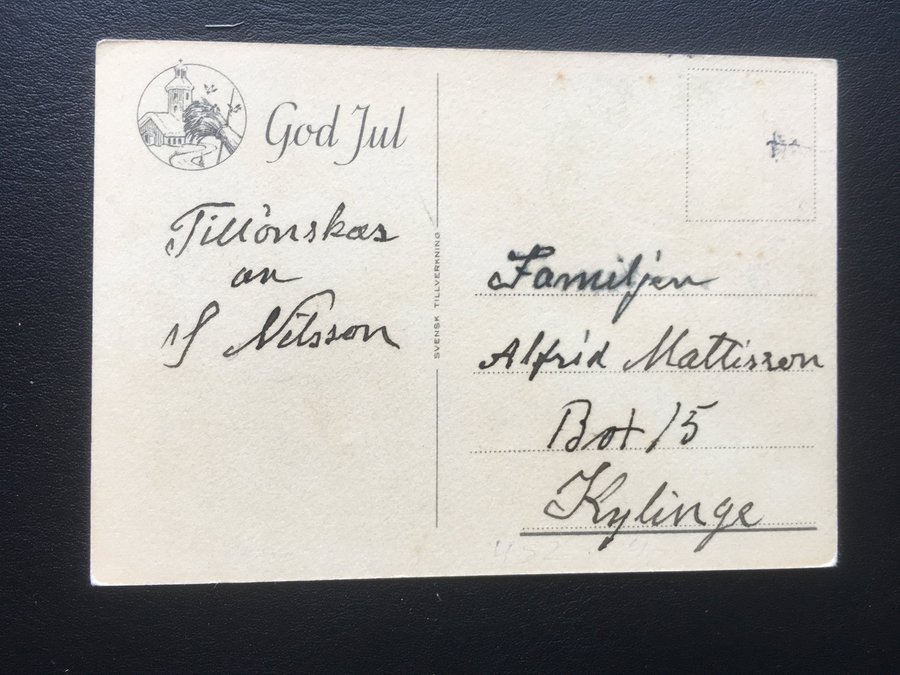 God Jul
Tillönskas
av
Nilsson
SVENSK TILLVERKNING
Familjen
Alfrid Mattisson
Box 15
Kylinge